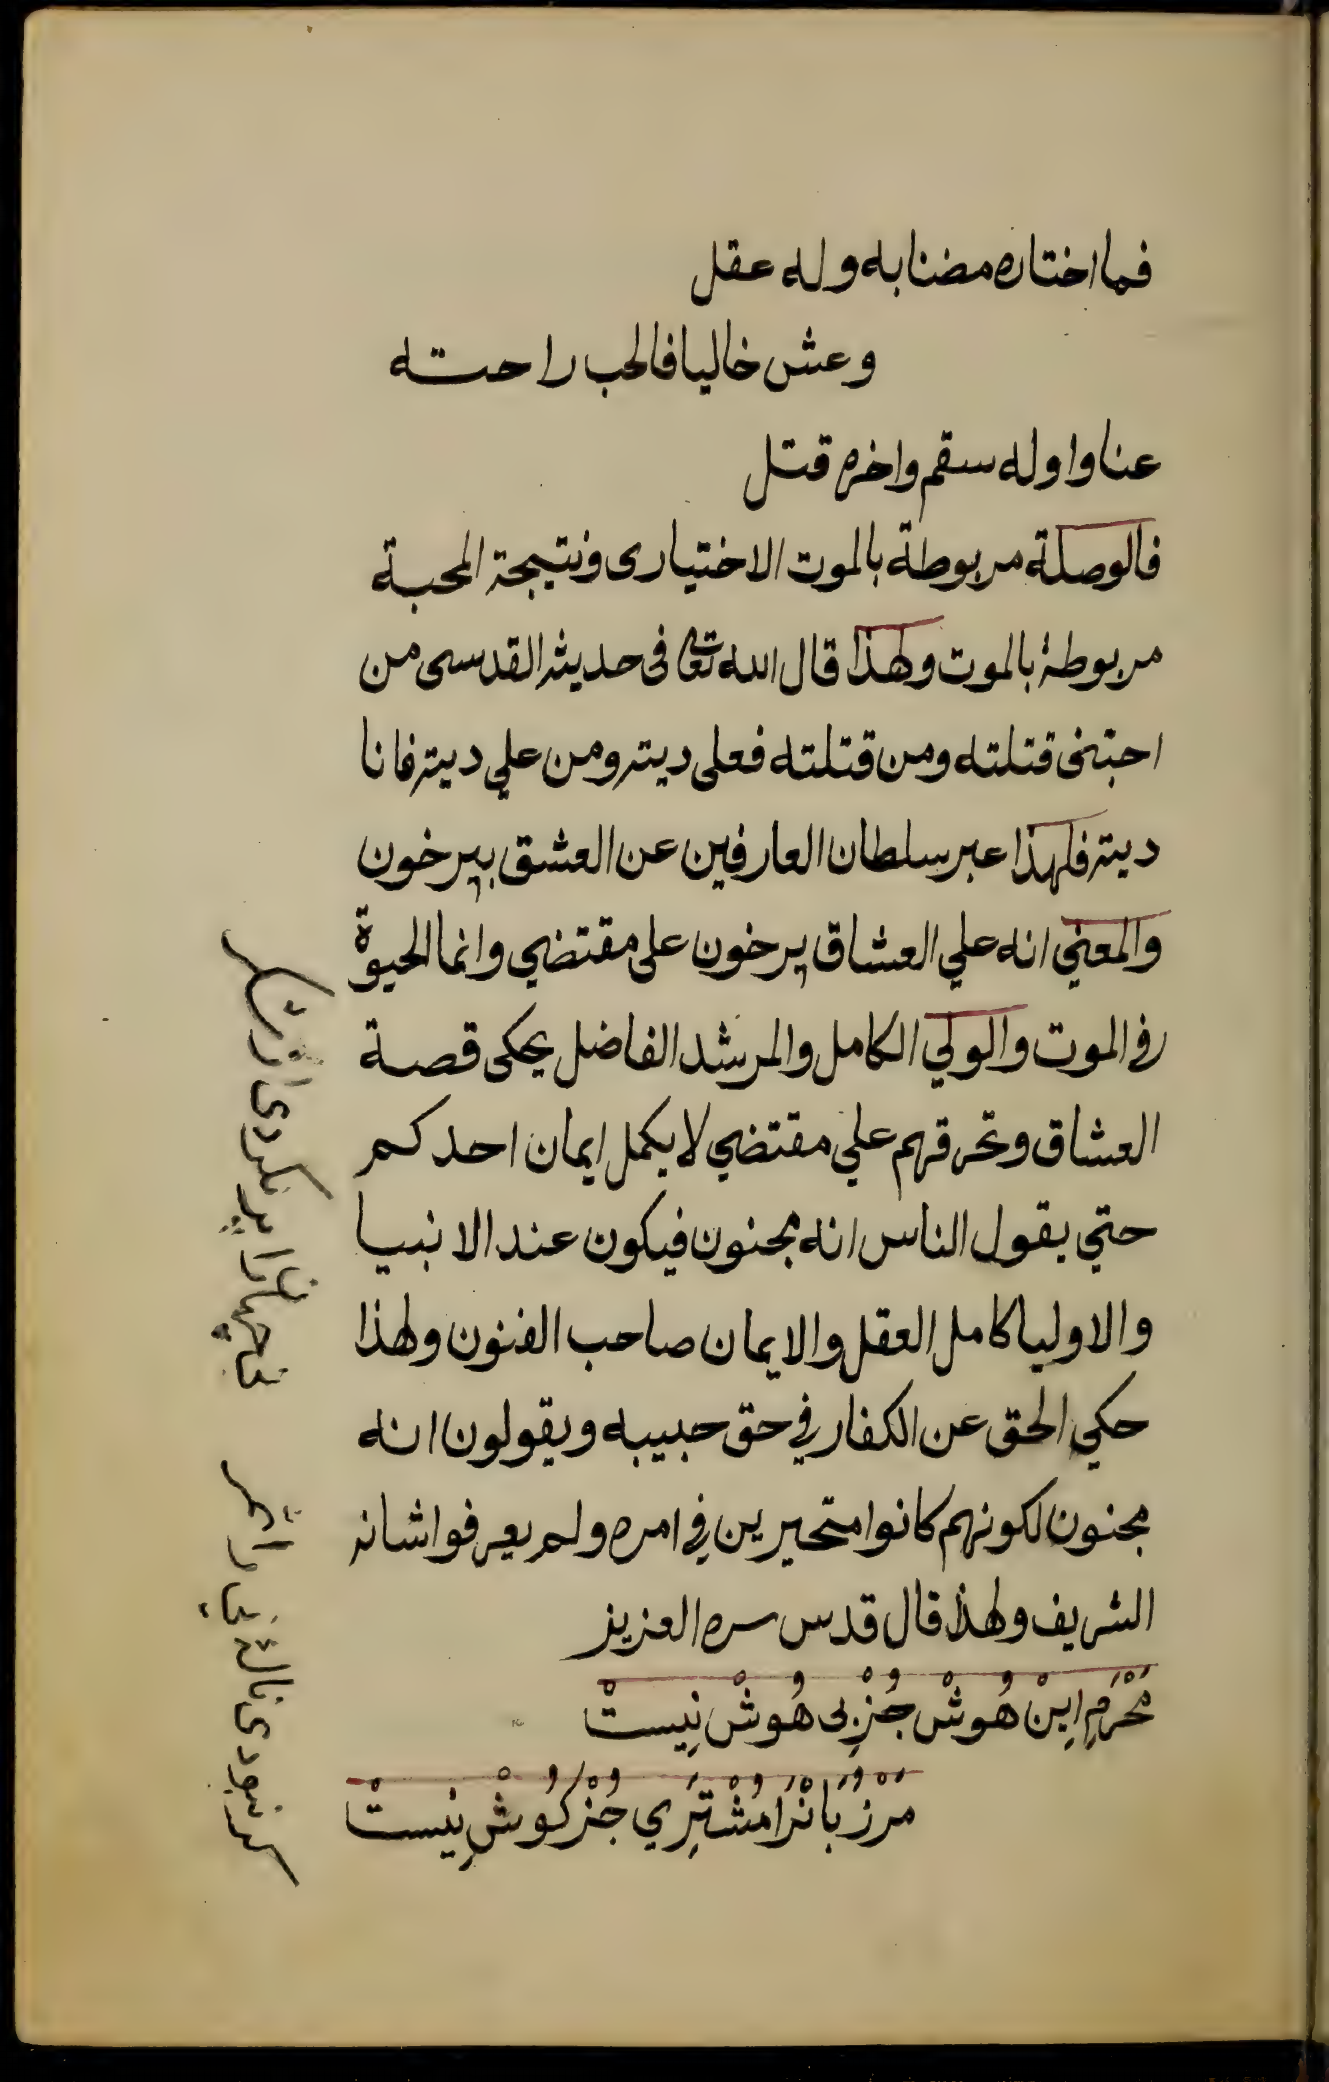 فما اختاره مضنا به وله عقل
وعش خاليا فالحب راحته
عنا واوله سقم واخره قتل
فالوصلة مربوطة بالموت الاختيارى ونتيجة المحبة
مربوطة بالموت ولهذا قال الله تعالى فى حديثه القدسى من
احبنى قتلته ومن قتلته فعلى ديته ومن علي ديته فانا
ديته فلهذا عبر سلطان العارفين عن العشق بپرخون
والمعني انه علي العشاق پرخون على مقتضي وانما الحيوة
في الموت والولي الكامل والمرشد الفاضل يحكى قصة
العشاق وتحرقهم علي مقتضي لا يكمل ايمان احدكم
حتي يقول الناس انه مجنون فيكون عند الانبيا
والاوليا كامل العقل والايمان صاحب الفنون ولهذا
حكي الحق عن الكفار في حق حبيبه ويقولون انه
مجنون لكونهم كانوا متحيرين في امره ولم يعرفوا شانه
الشريف ولهذا قال قدس سره العزيز
مَحْرَمِ اِينْ هُوشْ جُزْ بى هُوشْ نِيسْتْ
مَرْ زُبَانْرَا مُشْتَرِي جُزْ كُوشْ نِيسْتْ
كر نبودى نالش نى را ثمر
نى جهانرا پر نكردى از شكر